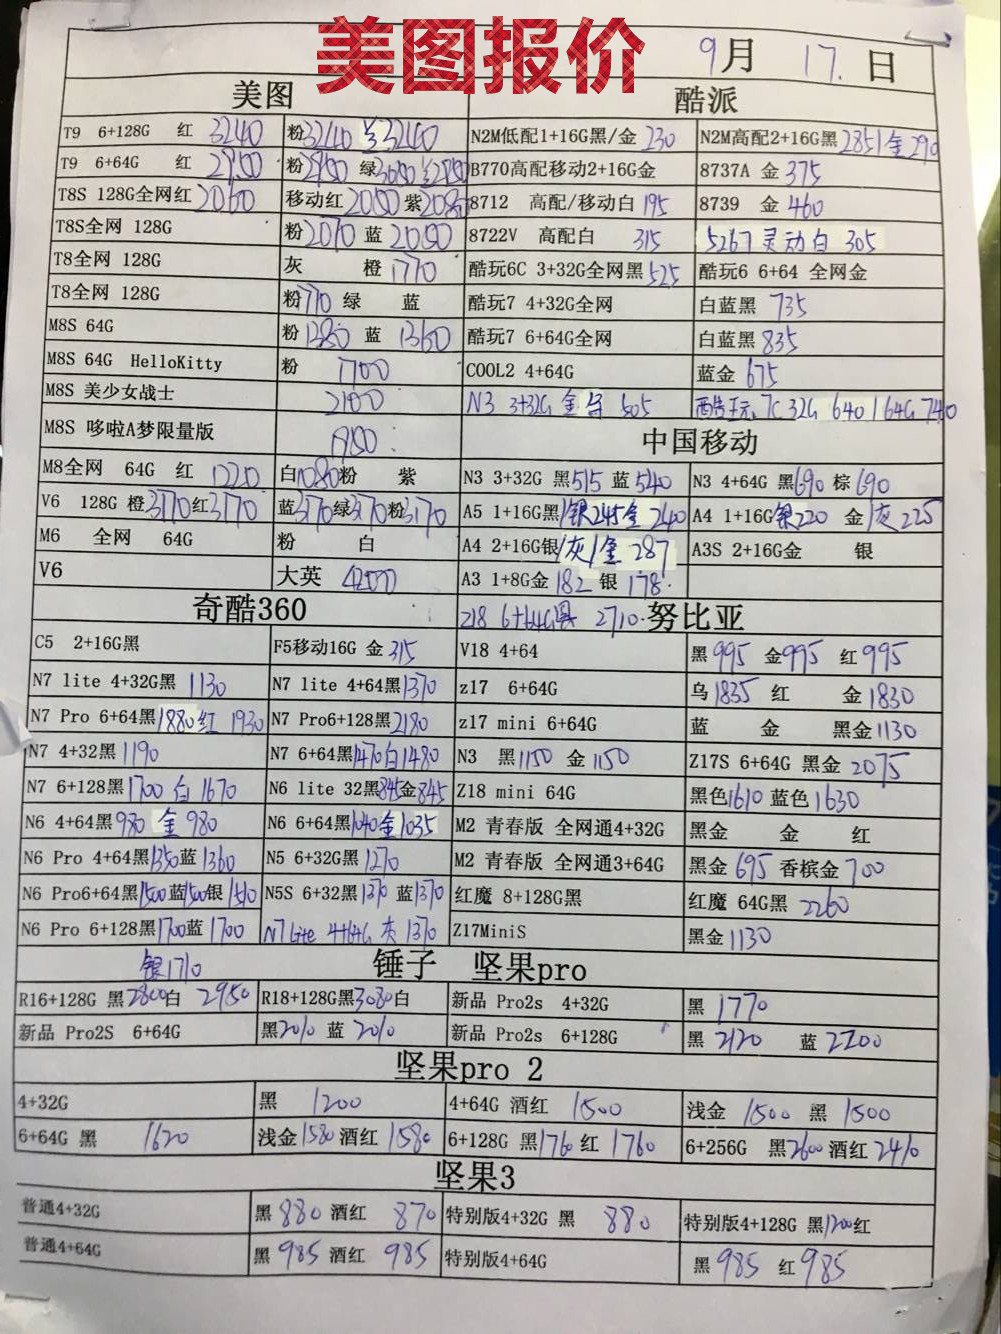 美图报价
9月 17.日
美图 酷派
T9 6+128G 红 3240 粉3240 兰3240 N2M低配1+16G黑/金 230 N2M高配2+16G黑 285/金290
T9 6+64G 红 2950 粉2950 绿 B770高配移动2+16G金 8737A 金 375
T8S 128G全网红 移动红 紫 8712 高配/移动白 195 8739 金 460
T8S全网 128G 粉2070 蓝 2050 8722V 高配白 315 5267 灵动白 305
T8全网 128G 灰 橙 1770 酷玩6C 3+32G全网黑 525 酷玩6 6+64 全网金
T8全网 128G 粉 绿 蓝 酷玩7 4+32G全网 白蓝黑 735
M8S 64G 粉 1380 蓝 1360 酷玩7 6+64G全网 白蓝黑 835
M8S 64G HelloKitty 粉 1700 COOL2 4+64G 蓝金 675
M8S 美少女战士 2100 N3 3+32G 金 505 酷玩 7C 32G 640 / 64G 740
M8S 哆啦A梦限量版 中国移动
M8全网 64G 红 白1080粉 紫 N3 3+32G 黑515 蓝 540 N3 4+64G 黑690 棕 690
V6 128G 橙3170红3170 蓝3170绿3170粉3170 A5 1+16G黑/银245金 240 A4 1+16G银220 金/灰 225
M6 全网 64G 粉 白 A4 2+16G银/灰/金 287 A3S 2+16G金 银
V6 大英 4200 A3 1+8G金 182 银 178
奇酷360 Z18 6+64G黑 2710 努比亚
C5 2+16G黑 F5移动16G 金 315 V18 4+64 黑 995 金995 红 995
N7 lite 4+32G黑 1130 N7 lite 4+64黑1370 z17 6+64G 乌 1835 红 金 1830
N7 Pro 6+64黑1880红 1930 N7 Pro6+128黑2180 z17 mini 6+64G 蓝 金 黑金1130
N7 4+32黑 1190 N7 6+64黑1470白1480 N3 黑1150 金 1150 Z17S 6+64G 黑金 2075
N7 6+128黑1700 白 1670 N6 lite 32黑845金845 Z18 mini 64G 黑色1610 蓝色1630
N6 4+64黑980 金 980 N6 6+64黑1040金1035 M2 青春版 全网通4+32G 黑金 金 红
N6 Pro 4+64黑1350蓝1360 N5 6+32G黑 1270 M2 青春版 全网通3+64G 黑金 695 香槟金 700
N6 Pro6+64黑1500蓝1500银1510 N5S 6+32黑1370 蓝1370 红魔 8+128G黑 红魔 64G黑 2260
N6 Pro 6+128黑1700蓝 1700 N7 Lite 4+64G 灰 1370 Z17MiniS 黑金1130
银1710 锤子 坚果pro
R16+128G 黑2800白 2950 R18+128G黑3080白 新品 Pro2s 4+32G 黑 1770
新品 Pro2S 6+64G 黑2010 蓝 2010 新品 Pro2s 6+128G 黑 2120 蓝 2200
坚果pro 2
4+32G 黑 1200 4+64G 酒红 1500 浅金 1500 黑 1500
6+64G 黑 1620 浅金1580 酒红 1580 6+128G 黑1760 红 1760 6+256G 黑2600 酒红 2410
坚果3
普通4+32G 黑 880 酒红 870 特别版4+32G 黑 880 特别版4+128G 黑1200红
普通4+64G 黑 985 酒红 985 特别版4+64G 黑 985 红985